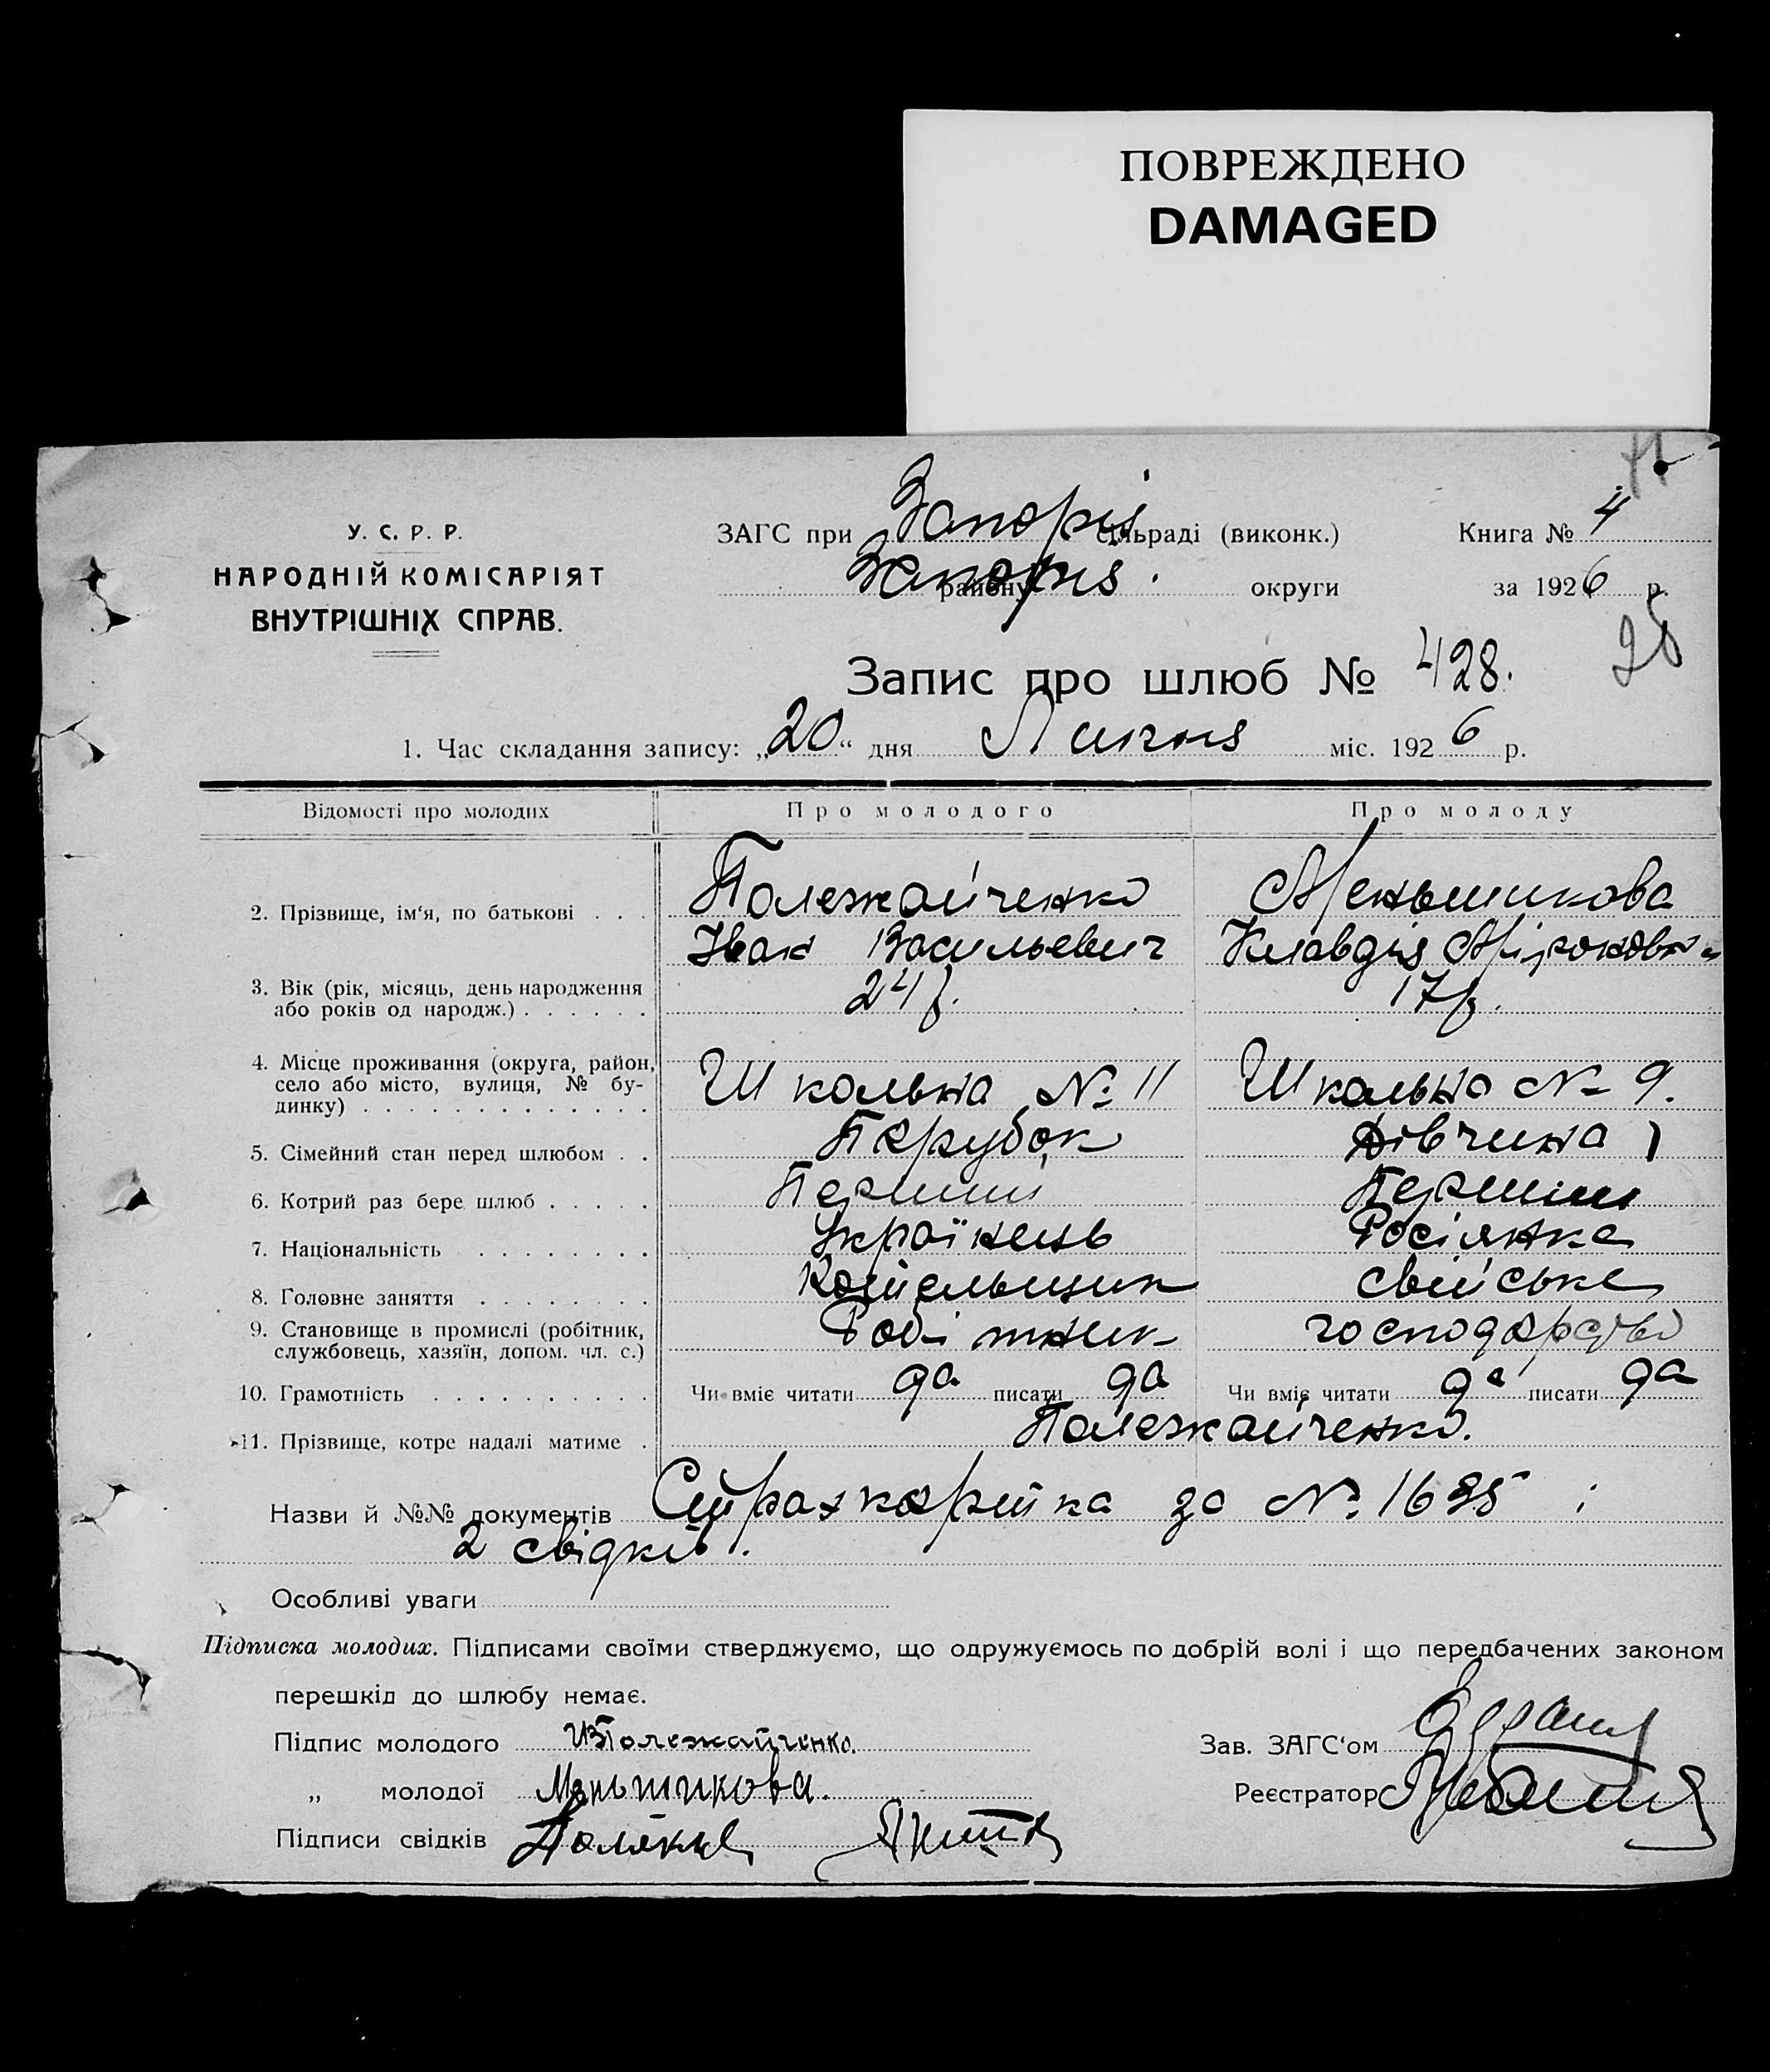 ПОВРЕЖДЕНО
DAMAGED
У. С. Р. Р.
НАРОДНІЙ КОМІСАРІЯТ
ВНУТРІШНІХ СПРАВ.
ЗАГС при Запоріз сільраді (виконк.) Книга № 4
району округи за 1926 р.
Запис про шлюб № 428.
1. Час складання запису: „20“ дня Липня міс. 1926 р.
Відомості про молодих Про молодого Про молоду
2. Прізвище, ім'я, по батькові . . . Полежайченко Меньшикова
Іван Васильевич Клавдія Міроновна
3. Вік (рік, місяць, день народження 24 р. 17 р.
або років од народж.) . . . . . .
4. Місце проживання (округа, район,
село або місто, вулиця, № бу- Школьна № 11 Школьна № 9.
динку) . . . . . . . . . . . . .
5. Сімейний стан перед шлюбом . . Парубок Дівчина
6. Котрий раз бере шлюб . . . . . Перший Перший
7. Національність . . . . . . . . Українець Росіянка
8. Головне заняття . . . . . . . . Котельщик свійське
9. Становище в промислі (робітник, Робітник господарство
службовець, хазяїн, допом. чл. с.)
10. Грамотність . . . . . . . . . . Чи вміє читати да писати да Чи вміє читати да писати да
11. Прізвище, котре надалі матиме . Полежайченко.
Назви й №№ документів Страхкартка за № 1695 і
2 свідків.
Особливі уваги
Підписка молодих. Підписами своїми стверджуємо, що одружуємось по добрій волі і що передбачених законом
перешкід до шлюбу немає.
Підпис молодого ИПолежайченко. Зав. ЗАГС'ом
„ молодої Меньшикова. Реєстратор
Підписи свідків